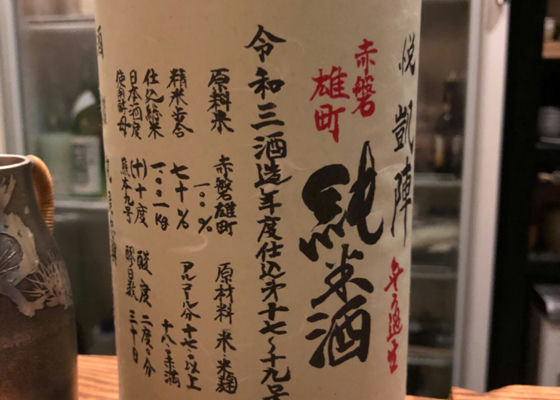 悦 凱陣
赤磐
雄町
純米酒
令和三酒造年度仕込第十七〜十九号
原料米 赤磐雄町 一〇〇% 原材料 米・米麹
精米歩合 七十% アルコール分 十七・〇以上
十八・〇未満
仕込総米 一〇〇一kg 酸度 二度〇分
日本酒度 (+)十度 醪日数 三十日
使用酵母 熊本九号
酒